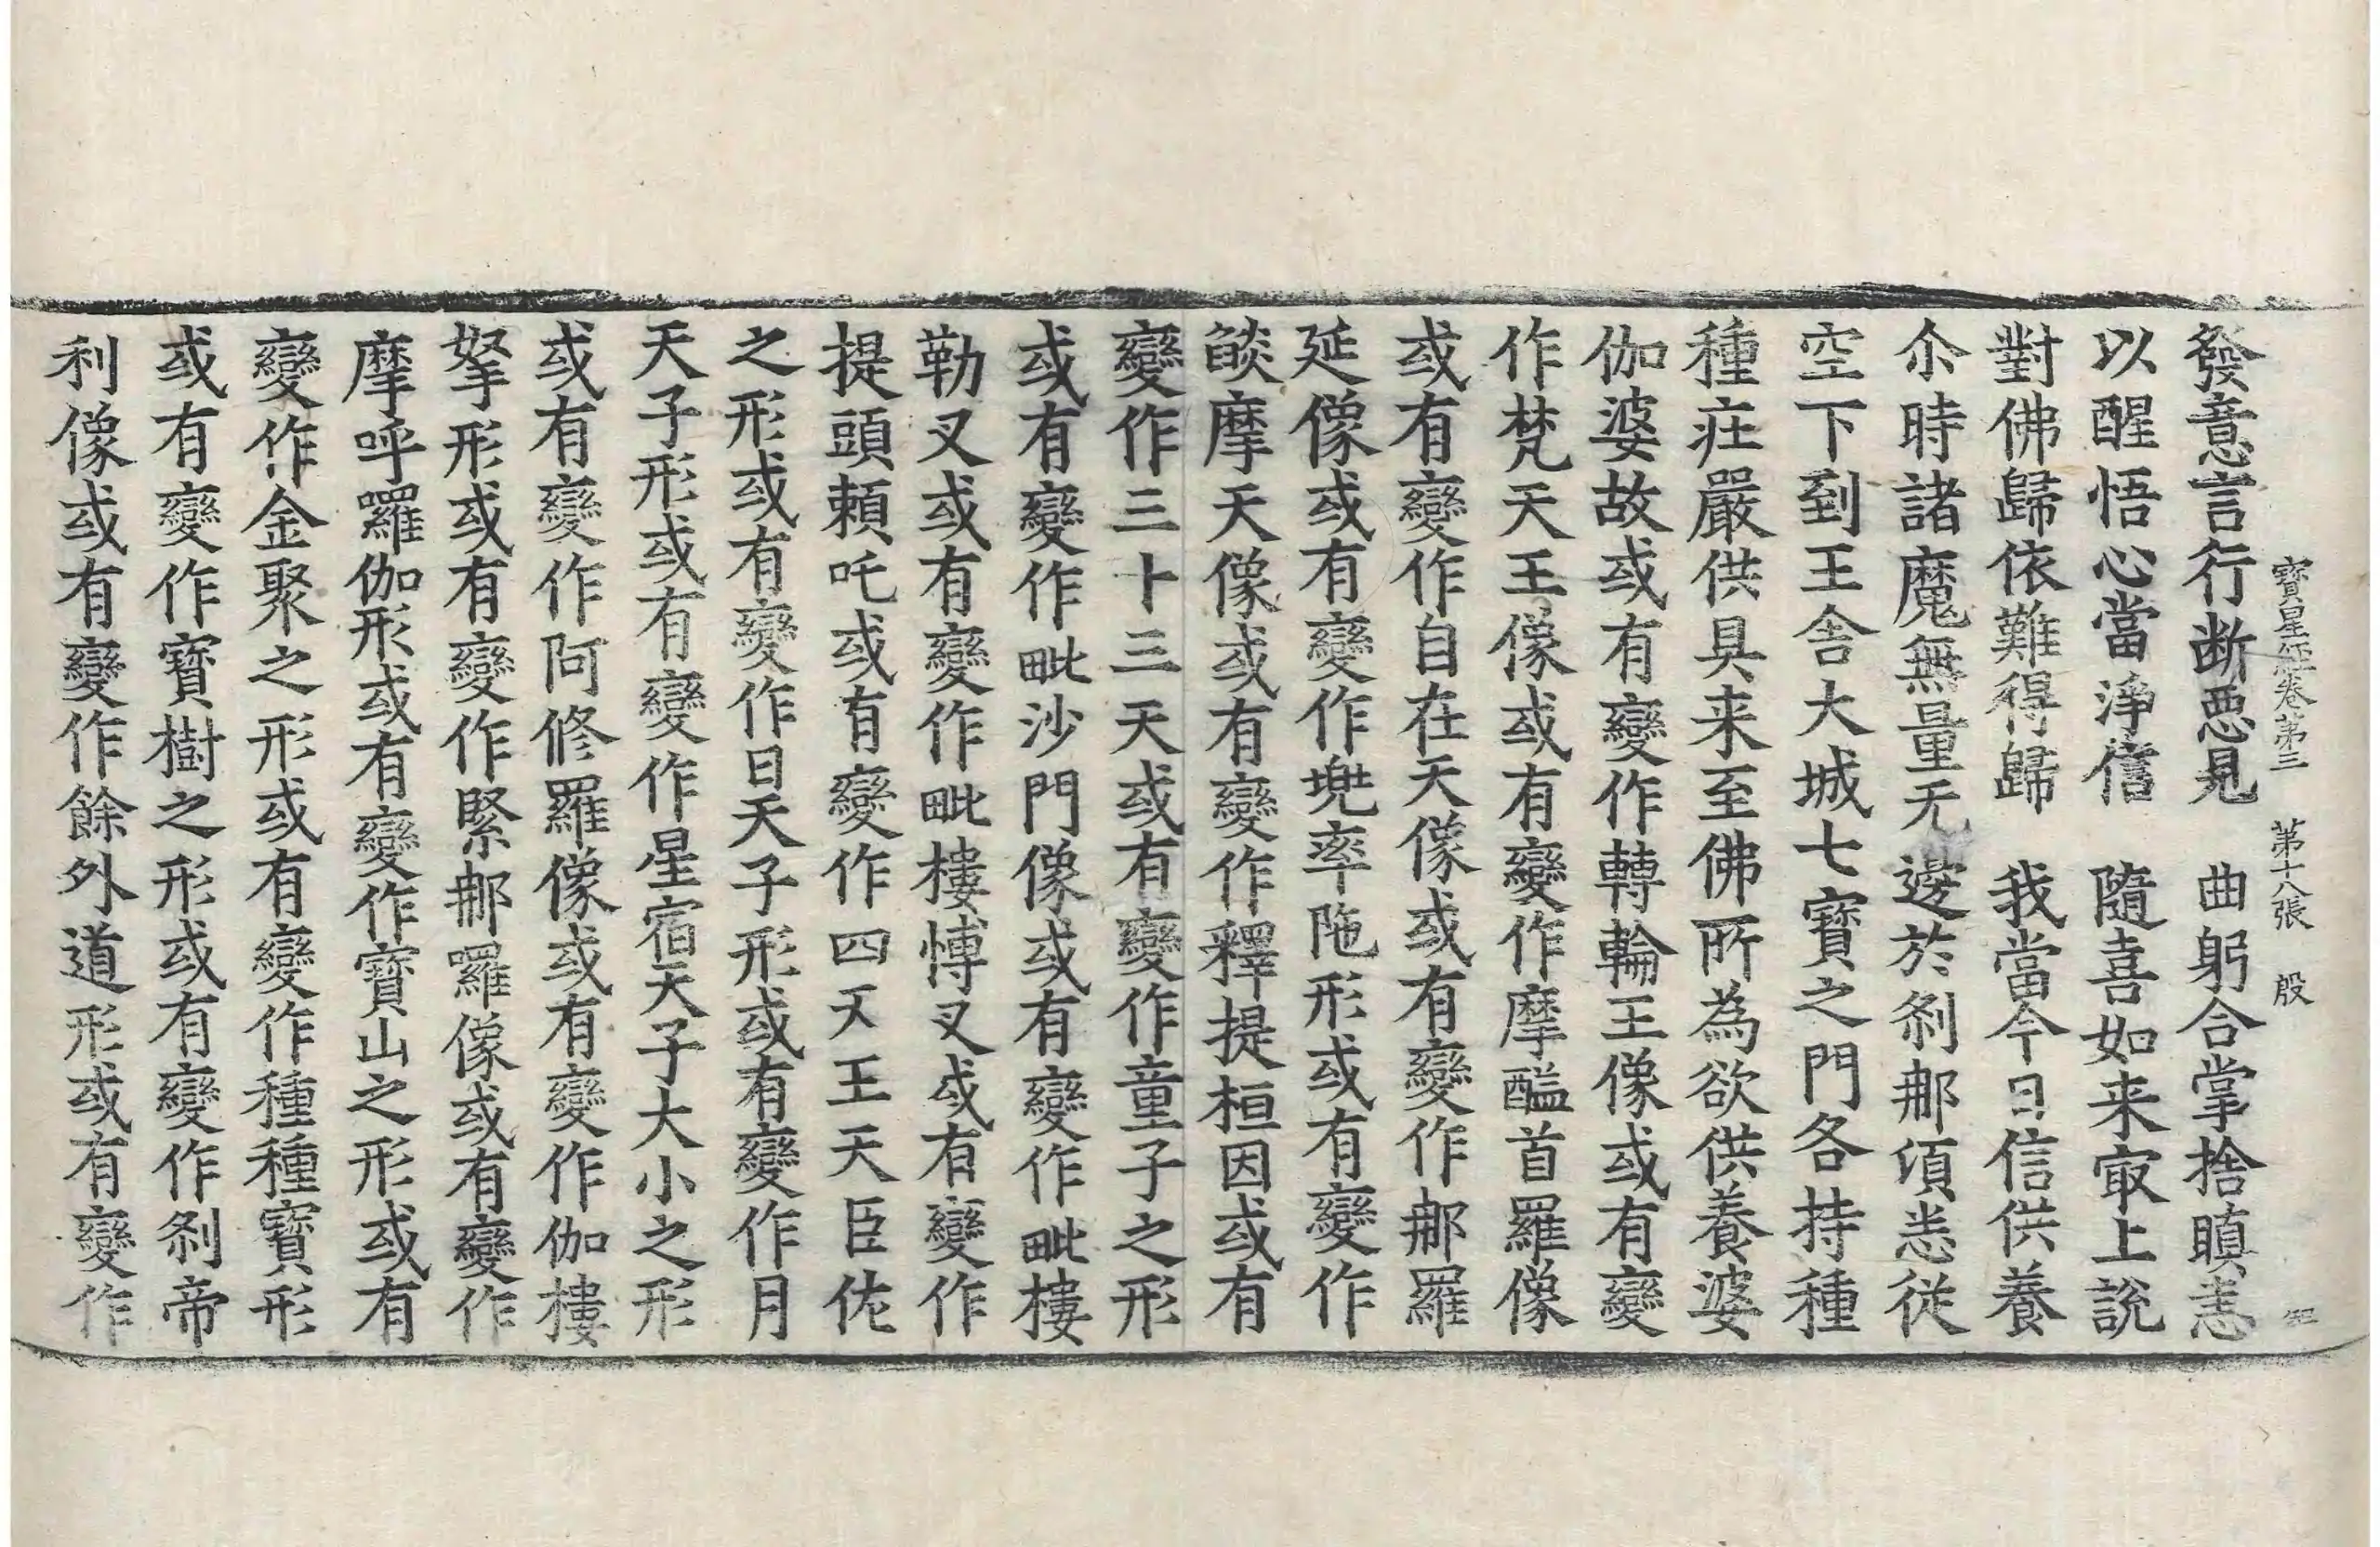 寶星經卷第三　第十八張　殷
發意言行断惡見　曲躬合掌捨瞋恚
以醒悟心當淨信　隨喜如来冣上說
對佛歸依難得歸　我當今日信供養
尒時諸魔無量无邊於刹那湏恚從
空下到王舍大城七寶之門各持種
種莊嚴供具来至佛所為欲供養婆
伽婆故或有變作轉輪王像或有變
作梵天王像或有變作摩醯首羅像
或有變作自在天像或有變作那羅
延像或有變作兠率陁形或有變作
𦦨摩天像或有變作釋提桓因或有
變作三十三天或有變作童子之形
或有變作毗沙門像或有變作毗樓
勒叉或有變作毗樓愽叉或有變作
提頭頼吒或有變作四天王天臣佐
之形或有變作日天子形或有變作月
天子形或有變作星宿天子大小之形
或有變作阿修羅像或有變作伽樓
拏形或有變作緊那囉像或有變作
摩呼囉伽形或有變作寶山之形或有
變作金聚之形或有變作種種寶形
或有變作寶樹之形或有變作刹帝
利像或有變作餘外道形或有變作